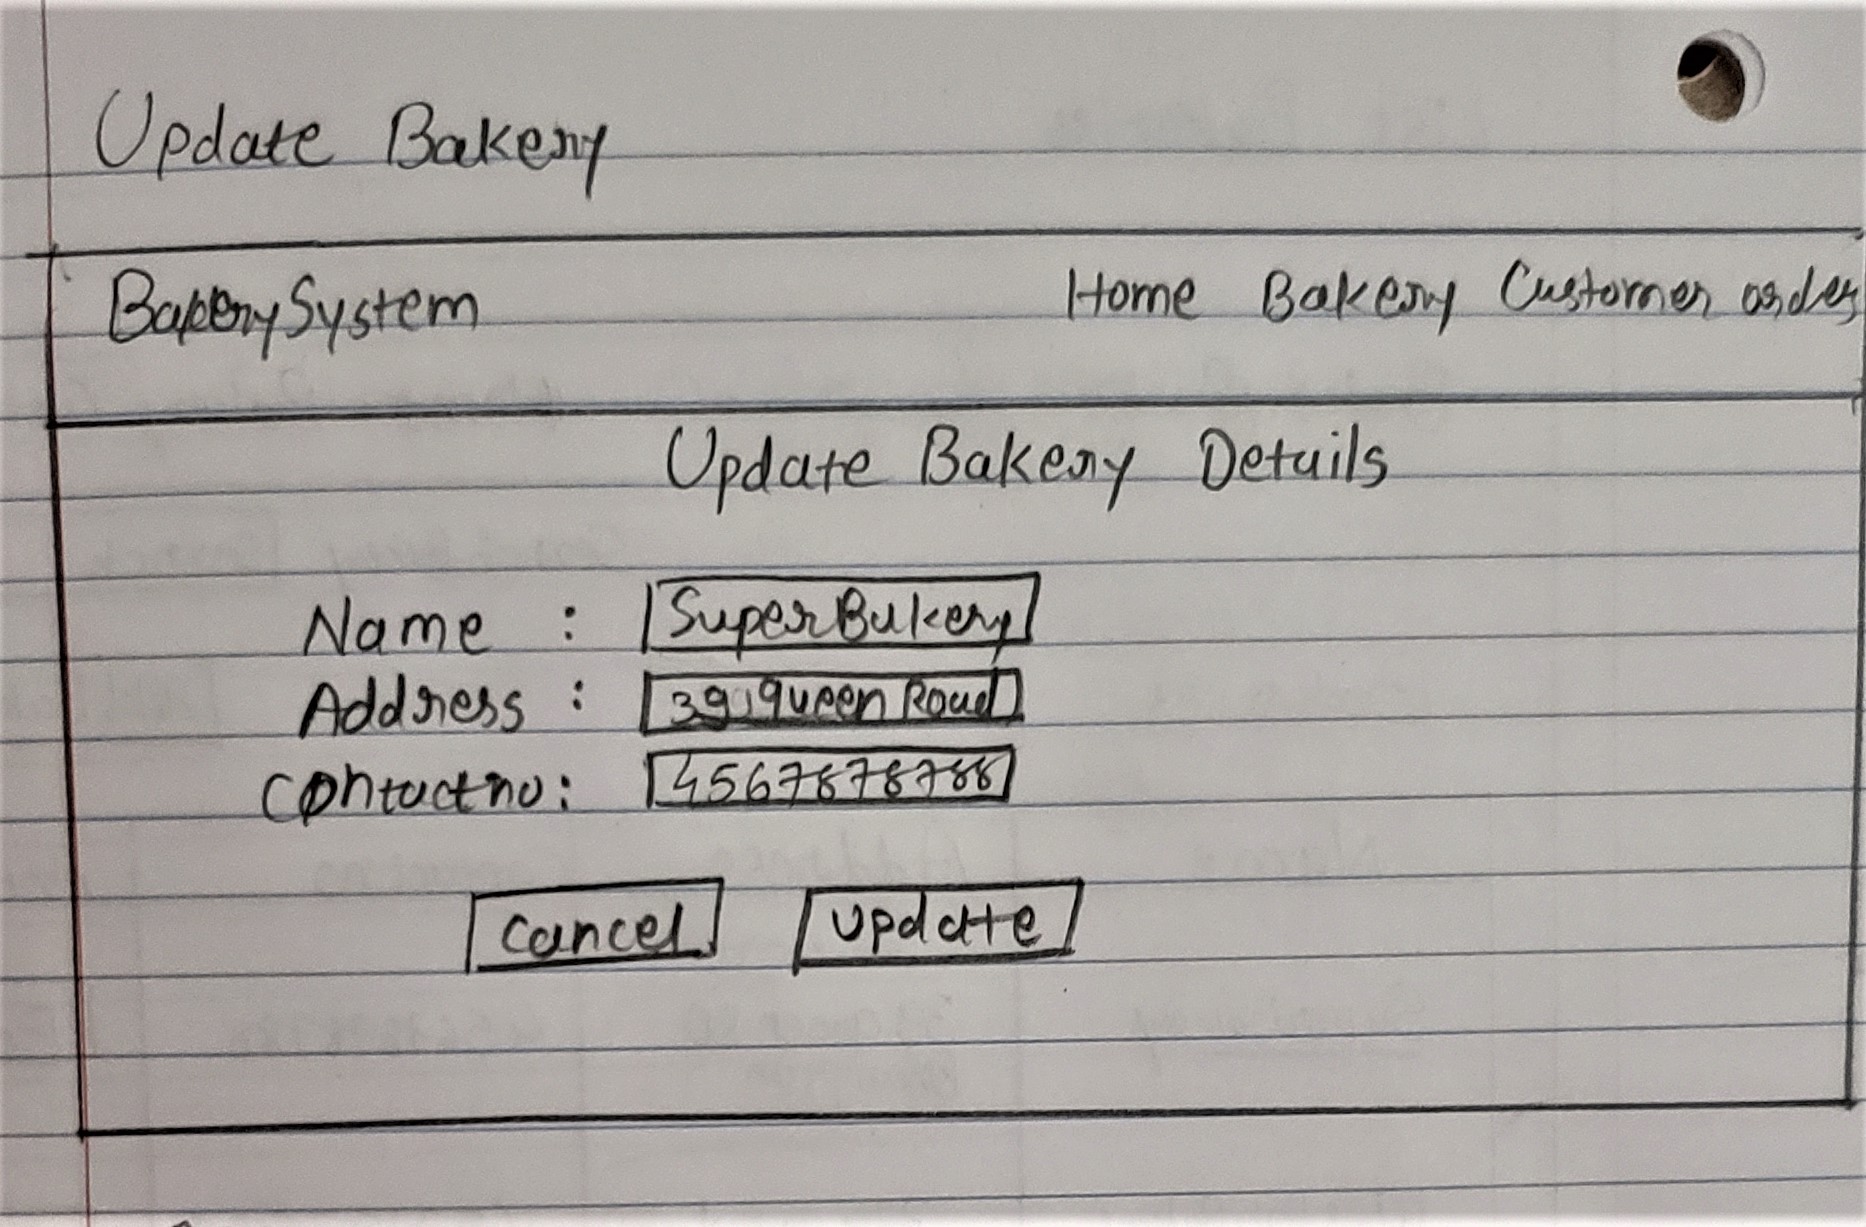 Update Bakery
BakerySystem Home Bakery Customer order
Update Bakery Details
Name : SuperBakery
Address : 39, queen Road
Contactno: 4567878788
Cancel Update